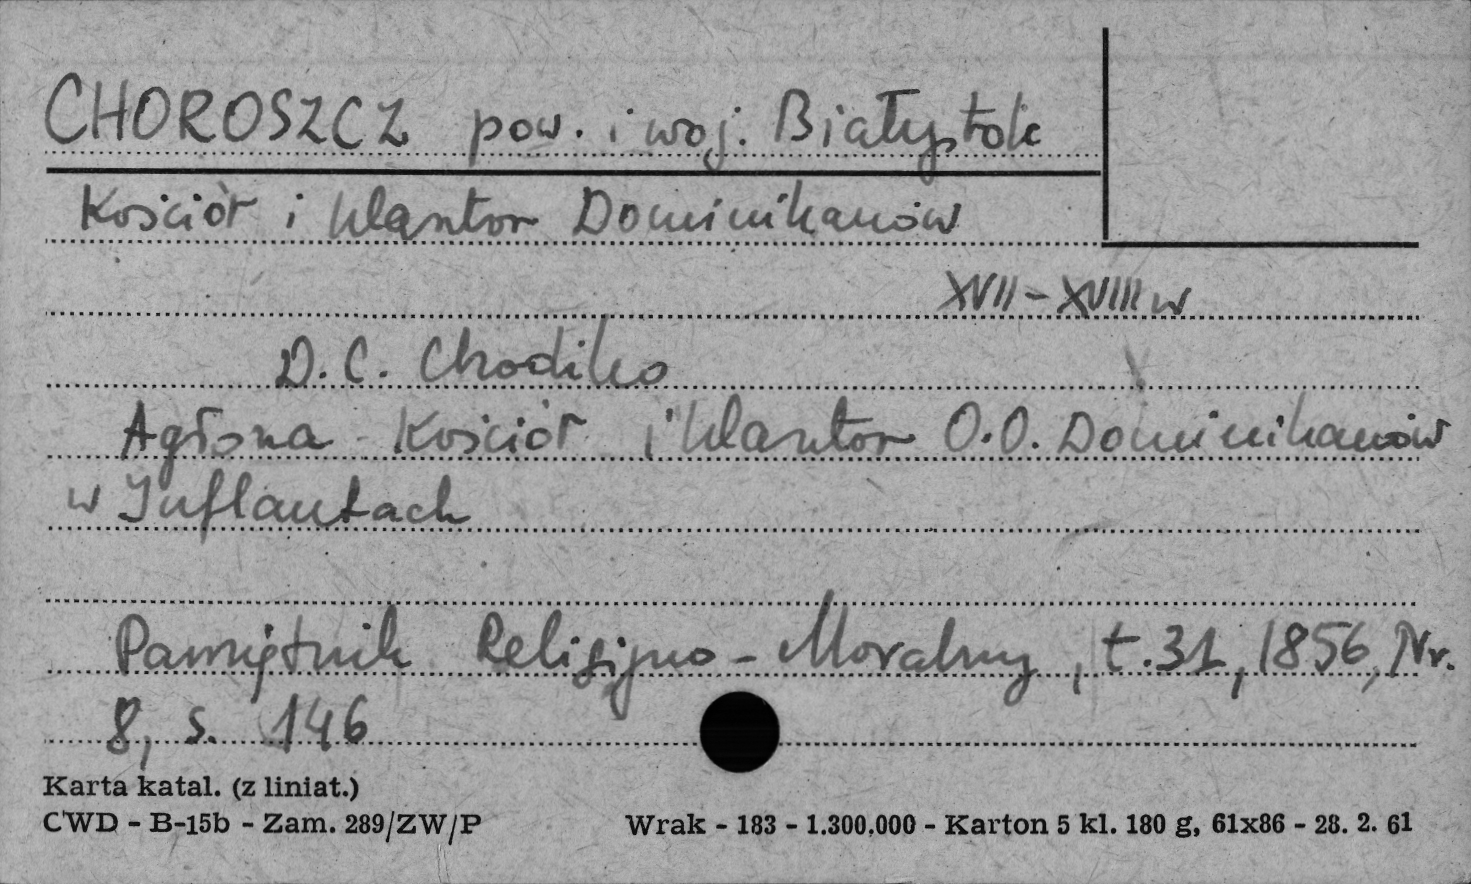 CHOROSZCZ pow. i woj. Białystok
Kościół i klasztor Dominikanów
XVII-XVIII w
D. C. Chodźko
Agłona Kościół i klasztor O.O. Dominikanów
w Inflantach
Pamiętnik Religijno-Moralny, t. 31, 1856, Nr.
8, s. 146
Karta katal. (z liniat.)
CWD - B-15b - Zam. 289/ZW/P Wrak - 183 - 1.300.000 - Karton 5 kl. 180 g, 61x86 - 28. 2. 61